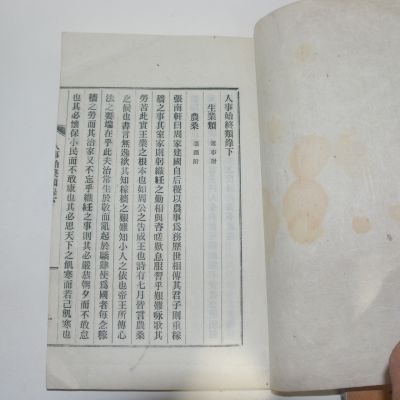 人事始終類錄下
生業類 雜事附
農桑 蚕織附
張南軒曰周家建國自后稷以農事為務歷世相傳其君子則重稼
穡之事其室家則躬織紝之勤相與咨嗟歎息服習乎艱難詠歌其
勞苦此實王業之根本也如周公之告成王也詩有七月皆言農桑
之候也書言無逸欲其知稼穡之艱難知小人之依也帝王所傳心
法之要端在乎此夫治常生於敬而亂起於驕肆使為國者每念稼
穡之勞而其治家又不忘乎織紝之事則其必嚴恭朝夕而不敢怠
也其必懷保小民而不敢康也其必思天下之飢寒而若己飢寒也